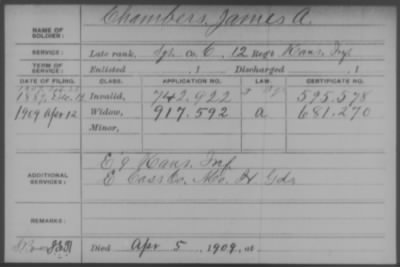 NAME OF SOLDIER: Chambers, James A.
SERVICE: Late rank, Co. C, 12 Reg't Kans. Inf
TERM OF SERVICE: Enlisted , 1 Discharged , 1
DATE OF FILING. CLASS. APPLICATION NO. LAW. CERTIFICATE NO.
Invalid, 742.922 595.578
1909 Apr 12 Widow, 917.592 a 681.270
Minor,
ADDITIONAL SERVICES:
E 9 Kans. Inf
E Cass Co. Mo. H Gds
REMARKS:
Died Apr 5, 1909, at